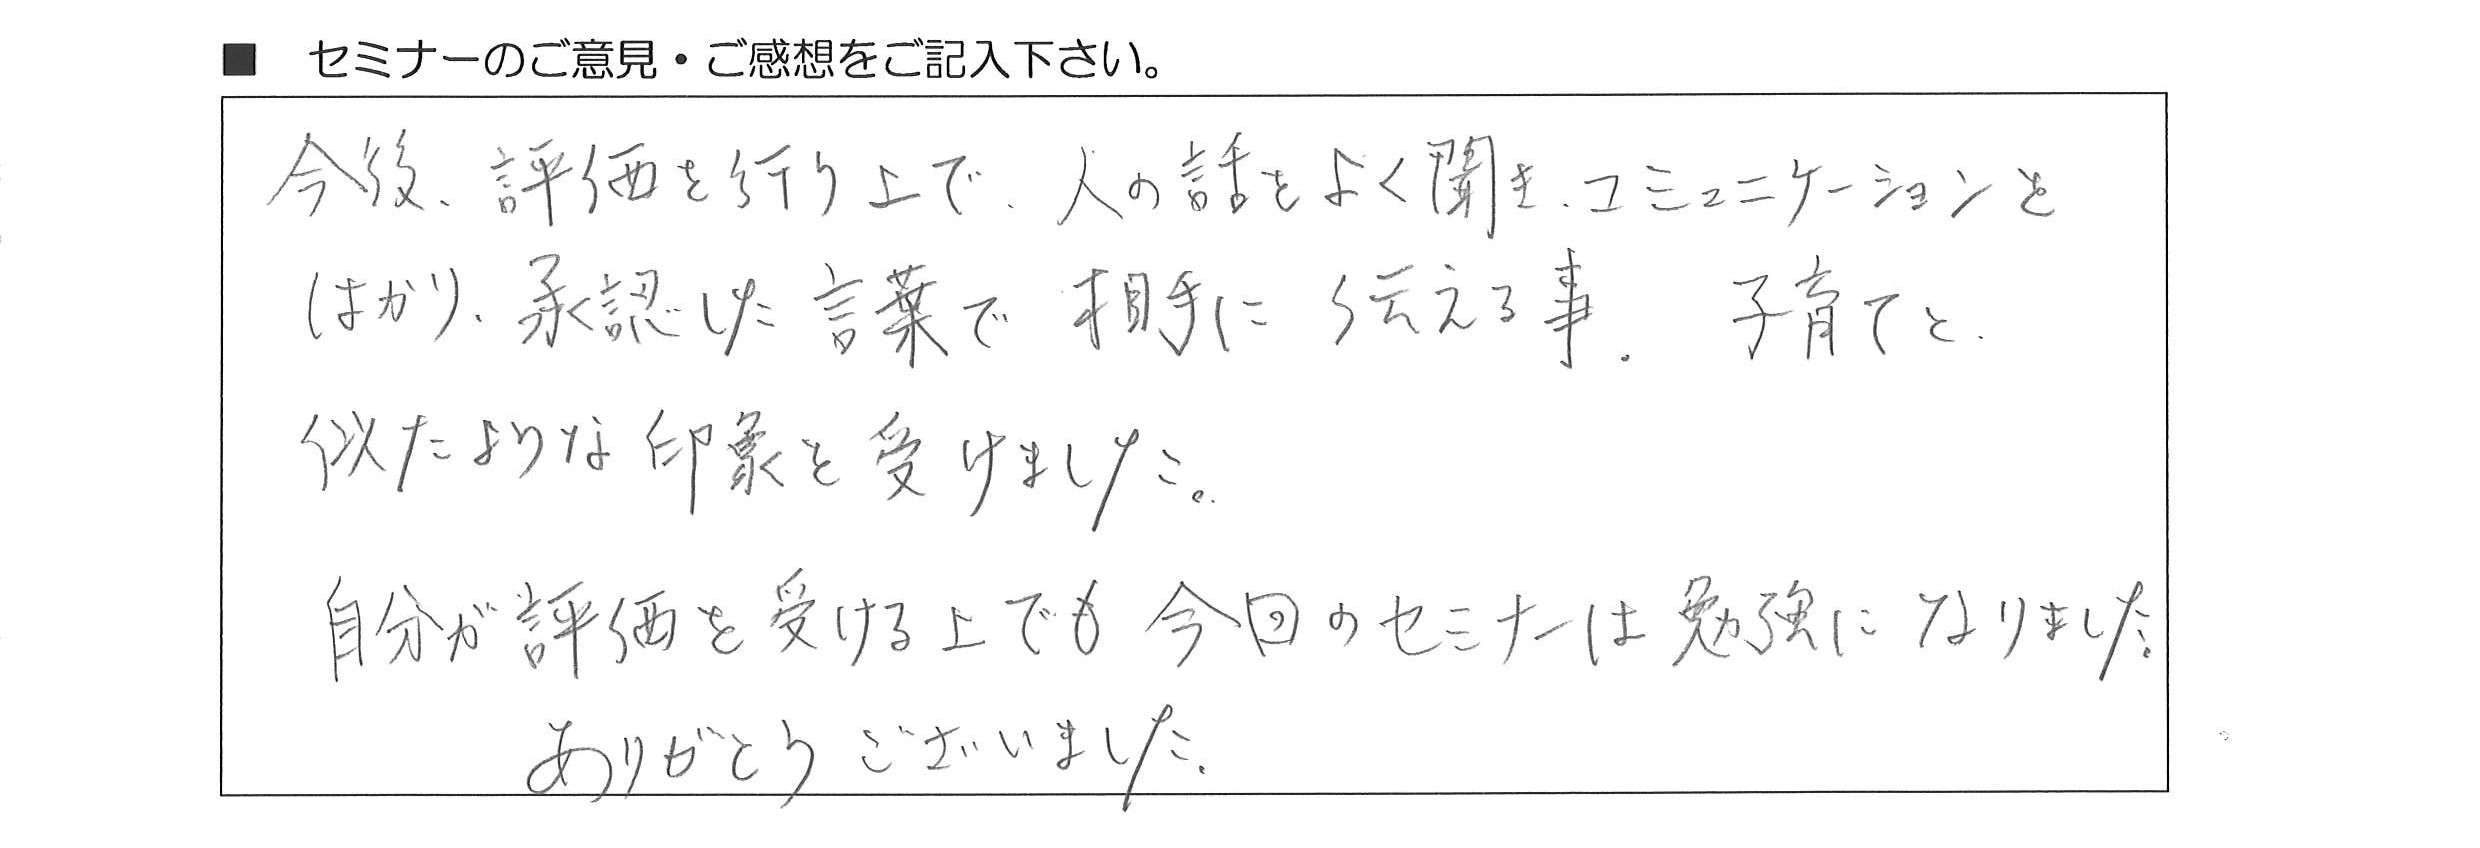 ■ セミナーのご意見・ご感想をご記入下さい。
今後、評価を行う上で、人の話をよく聞き、コミュニケーションを
はかり、承認した言葉で相手に伝える事。 子育てと、
似たような印象を受けました。
自分が評価を受ける上でも今回のセミナーは勉強になりました。
ありがとうございました。